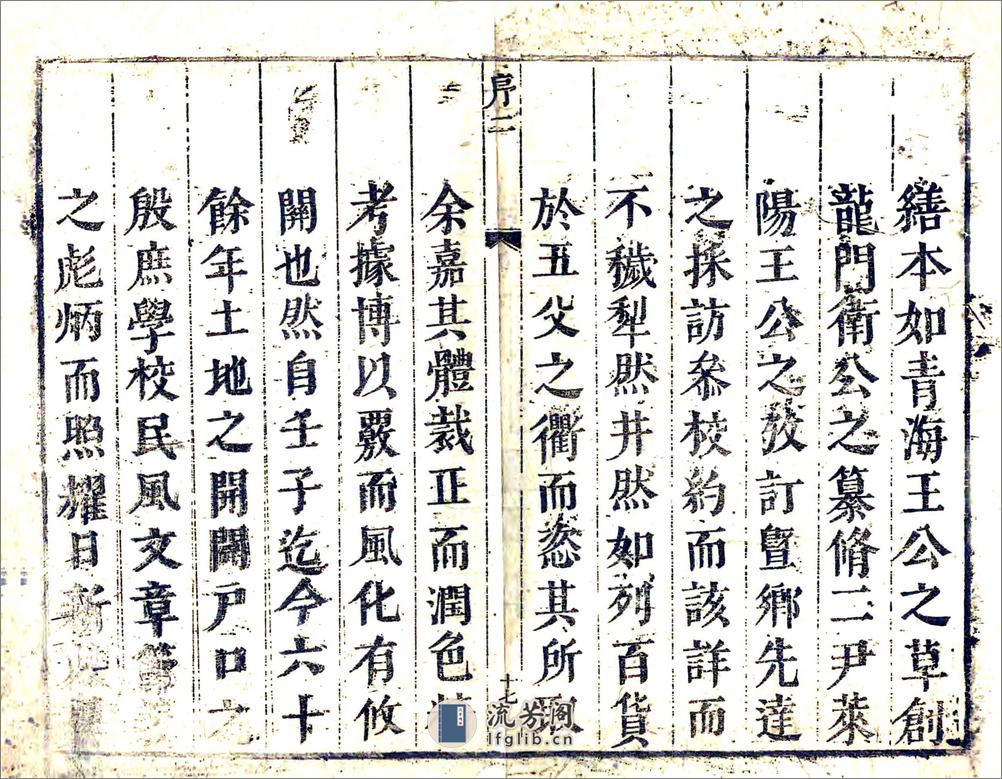 繕本如青海王公之草創
龍門衛公之纂脩二尹萊
陽王公之攷訂曁鄉先達
之採訪叅校約而該詳而
不穢犁然井然如列百貨
於五父之衢而恣其所取
序二
十七
余嘉其體裁正而潤色
考據博以覈而風化有攸
關也然自壬子迄今六十
餘年土地之開闢戸口之
殷庶學校民風文章
之彪炳而照耀日新
流芳阁
lfglib.cn